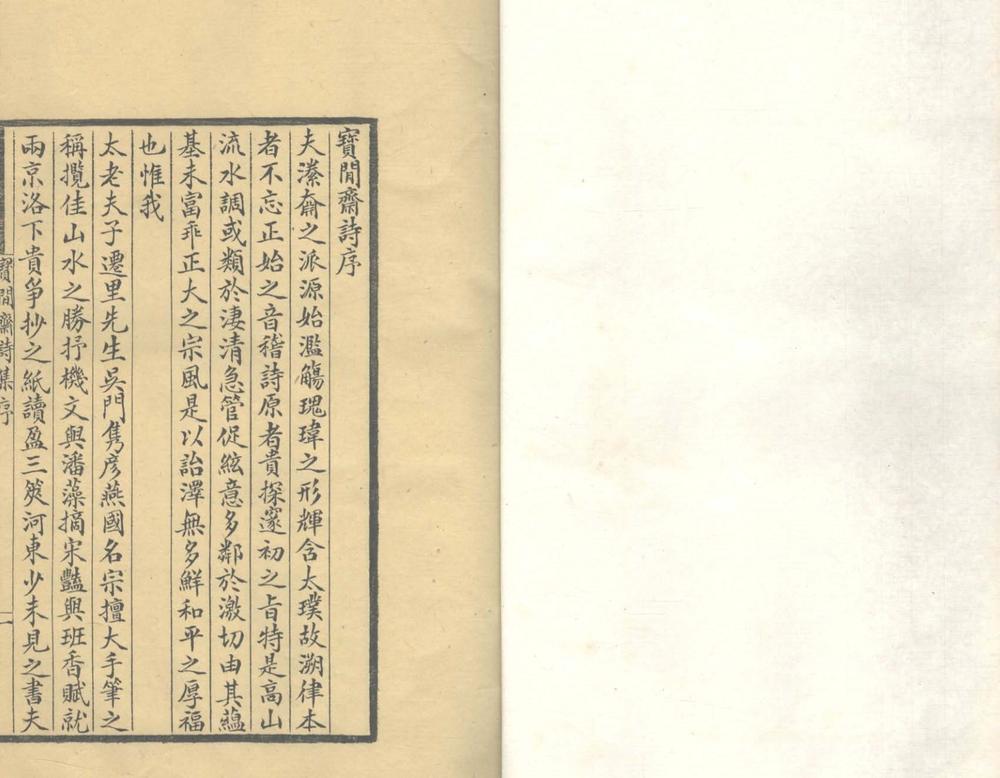 寶閒齋詩序
夫濼奫之派源始濫觴瑰瑋之形輝含太璞故溯律本
者不忘正始之音稽詩原者貴探邃初之旨特是高山
流水調或類於淒清急管促絃意多鄰於激切由其蘊
基未富乖正大之宗風是以詒澤無多鮮和平之厚福
也惟我
太老夫子遷里先生吳門雋彥燕國名宗擅大手筆之
稱攬佳山水之勝抒機文與潘藻摛宋豔與班香賦就
兩京洛下貴爭抄之紙讀盈三篋河東少未見之書夫
寶閒齋詩集序
一